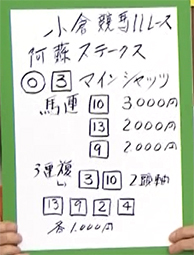 小倉競馬11レース
阿蘇ステークス
◎ 3 マインシャッツ
馬連 10 3000円
13 2000円
9 2000円
3連複 3 10 2頭軸
13 9 2 4
各1,000円